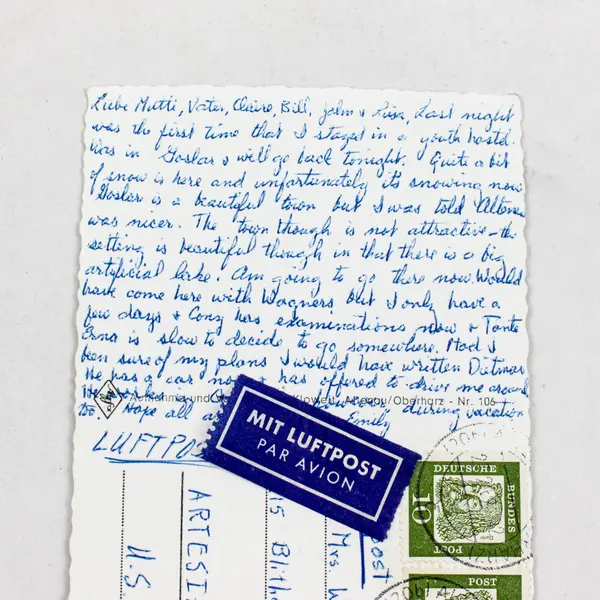 Liebe Mutti, Vater, Claire, Bill, John & Lisa, Last night
was the first time that I stayed in a youth hostel.
Was in Goslar & will go back tonight. Quite a bit
of snow is here and unfortunately it's snowing now
Goslar is a beautiful town but I was told Altenau
was nicer. The town though is not attractive - the
setting is beautiful though in that there is a big
artificial lake. Am going to go there now. Would
have come here with Wagners but I only have a
few days & Cony has examinations now & Tante
Erna is slow to decide to go somewhere. Had I
been sure of my plans I would have written Dietmar
He has a car now & has offered to drive me around
Aufnahme und Klowert, Altenau/Oberharz - Nr. 106
however, during vacation
too. Hope all Emily
LUFTPO
MIT LUFTPOST
PAR AVION
DEUTSCHE BUNDES POST
10
POST
Mrs W
15 Blith
ARTESI
U.S.